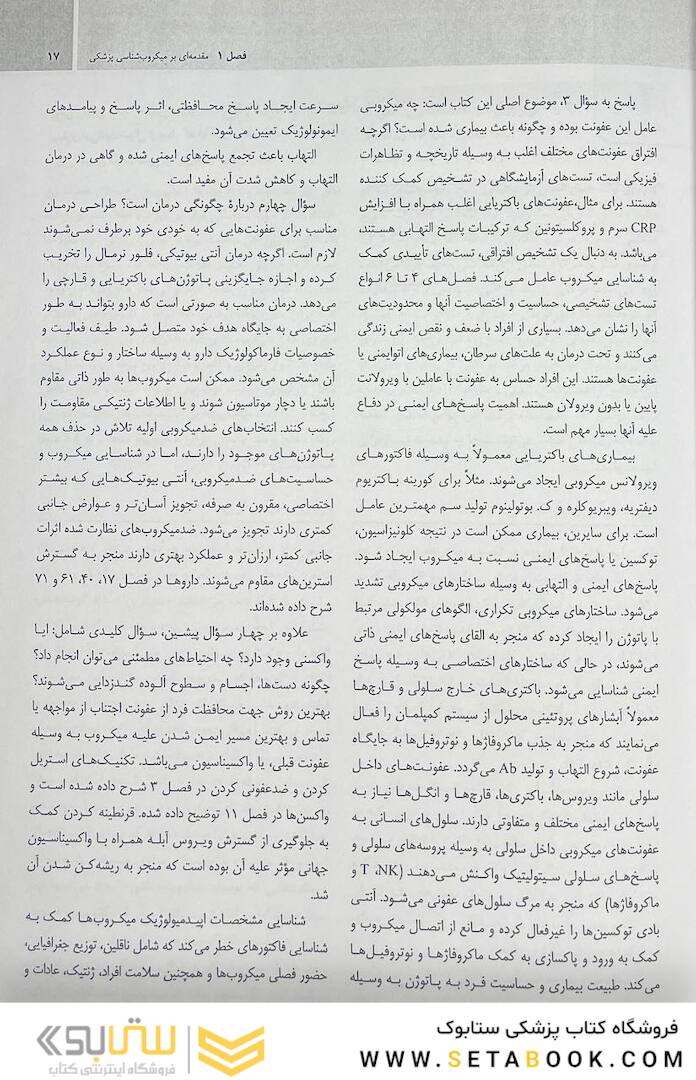 فصل ۱ مقدمه‌ای بر میکروب‌شناسی پزشکی ۱۷
پاسخ به سؤال ۳، موضوع اصلی این کتاب است: چه میکروبی
عامل این عفونت بوده و چگونه باعث بیماری شده است؟ اگرچه
افتراق عفونت‌های مختلف اغلب به وسیله تاریخچه و تظاهرات
فیزیکی است، تست‌های آزمایشگاهی در تشخیص کمک کننده
هستند. برای مثال،عفونت‌های باکتریایی اغلب همراه با افزایش
CRP سرم و پروکلسیتونین که ترکیبات پاسخ التهابی هستند،
می‌باشد. به دنبال یک تشخیص افتراقی، تست‌های تأییدی کمک
به شناسایی میکروب عامل می‌کند. فصل‌های ۴ تا ۶ انواع
تست‌های تشخیصی، حساسیت و اختصاصیت آنها و محدودیت‌های
آنها را نشان می‌دهد. بسیاری از افراد با ضعف و نقص ایمنی زندگی
می‌کنند و تحت درمان به علت‌های سرطان، بیماری‌های اتوایمنی یا
عفونت‌ها هستند. این افراد حساس به عفونت با عاملین با ویرولانت
پایین یا بدون ویرولان هستند. اهمیت پاسخ‌های ایمنی در دفاع
علیه آنها بسیار مهم است.
بیماری‌های باکتریایی معمولاً به وسیله فاکتورهای
ویرولانس میکروبی ایجاد می‌شوند. مثلاً برای کورینه باکتریوم
دیفتریه، ویبریوکلره و ک. بوتولینوم تولید سم مهمترین عامل
است. برای سایرین، بیماری ممکن است در نتیجه کلونیزاسیون،
توکسین یا پاسخ‌های ایمنی نسبت به میکروب ایجاد شود.
پاسخ‌های ایمنی و التهابی به وسیله ساختارهای میکروبی تشدید
می‌شود. ساختارهای میکروبی تکراری، الگوهای مولکولی مرتبط
با پاتوژن را ایجاد کرده که منجر به القای پاسخ‌های ایمنی ذاتی
می‌شوند، در حالی که ساختارهای اختصاصی به وسیله پاسخ
ایمنی شناسایی می‌شود. باکتری‌های خارج سلولی و قارچ‌ها
معمولاً آبشارهای پروتئینی محلول از سیستم کمپلمان را فعال
می‌نمایند که منجر به جذب ماکروفاژها و نوتروفیل‌ها به جایگاه
عفونت، شروع التهاب و تولید Ab می‌گردد. عفونت‌های داخل
سلولی مانند ویروس‌ها، باکتری‌ها، قارچ‌ها و انگل‌ها نیاز به
پاسخ‌های ایمنی مختلف و متفاوتی دارند. سلول‌های انسانی به
عفونت‌های میکروبی داخل سلولی به وسیله پروسه‌های سلولی و
پاسخ‌های سلولی سیتولیتیک واکنش می‌دهند (T ،NK و
ماکروفاژها) که منجر به مرگ سلول‌های عفونی می‌شود. آنتی
بادی توکسین‌ها را غیرفعال کرده و مانع از اتصال میکروب و
کمک به ورود و پاکسازی به کمک ماکروفاژها و نوتروفیل‌ها
می‌کند. طبیعت بیماری و حساسیت فرد به پاتوژن به وسیله
سرعت ایجاد پاسخ محافظتی، اثر پاسخ و پیامدهای
ایمونولوژیک تعیین می‌شود.
التهاب باعث تجمع پاسخ‌های ایمنی شده و گاهی در درمان
التهاب و کاهش شدت آن مفید است.
سؤال چهارم دربارهٔ چگونگی درمان است؟ طراحی درمان
مناسب برای عفونت‌هایی که به خودی خود برطرف نمی‌شوند
لازم است. اگرچه درمان آنتی بیوتیکی، فلور نرمال را تخریب
کرده و اجازه جایگزینی پاتوژن‌های باکتریایی و قارچی را
می‌دهد. درمان مناسب به صورتی است که دارو بتواند به طور
اختصاصی به جایگاه هدف خود متصل شود. طیف فعالیت و
خصوصیات فارماکولوژیک دارو به وسیله ساختار و نوع عملکرد
آن مشخص می‌شود. ممکن است میکروب‌ها به طور ذاتی مقاوم
باشند یا دچار موتاسیون شوند و یا اطلاعات ژنتیکی مقاومت را
کسب کنند. انتخاب‌های ضدمیکروبی اولیه تلاش در حذف همه
پاتوژن‌های موجود را دارند، اما در شناسایی میکروب و
حساسیت‌های ضدمیکروبی، آنتی بیوتیک‌هایی که بیشتر
اختصاصی، مقرون به صرفه، تجویز آسان‌تر و عوارض جانبی
کمتری دارند تجویز می‌شود. ضدمیکروب‌های نظارت شده اثرات
جانبی کمتر، ارزان‌تر و عملکرد بهتری دارند منجر به گسترش
استرین‌های مقاوم می‌شوند. داروها در فصل ۱۷، ۴۰، ۶۱ و ۷۱
شرح داده شده‌اند.
علاوه بر چهار سؤال پیشین، سؤال کلیدی شامل: ایا
واکسنی وجود دارد؟ چه احتیاط‌های مطمئنی می‌توان انجام داد؟
چگونه دست‌ها، اجسام و سطوح آلوده گندزدایی می‌شوند؟
بهترین روش جهت محافظت فرد از عفونت اجتناب از مواجهه یا
تماس و بهترین مسیر ایمن شدن علیه میکروب به وسیله
عفونت قبلی، یا واکسیناسیون می‌باشد. تکنیک‌های استریل
کردن و ضدعفونی کردن در فصل ۳ شرح داده شده است و
واکسن‌ها در فصل ۱۱ توضیح داده شده. قرنطینه کردن کمک
به جلوگیری از گسترش ویروس آبله همراه با واکسیناسیون
جهانی مؤثر علیه آن بوده است که منجر به ریشه‌کن شدن آن
شد.
شناسایی مشخصات اپیدمیولوژیک میکروب‌ها کمک به
شناسایی فاکتورهای خطر می‌کند که شامل ناقلین، توزیع جغرافیایی،
حضور فصلی میکروب‌ها و همچنین سلامت افراد، ژنتیک، عادات و
فروشگاه کتاب پزشکی ستابوک
WWW.SETABOOK.COM
ستابوک
فروشگاه اینترنتی کتاب